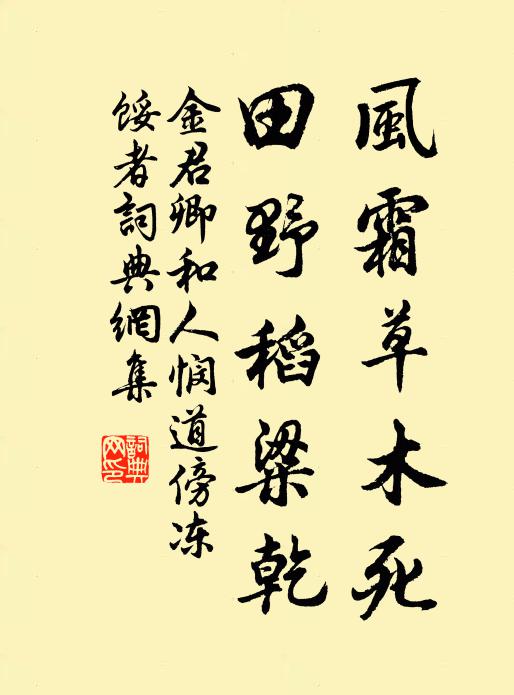 風霜草木死
田野稻粱乾
金君卿和人憫道傍冻
餒者詞典網集
詞典网印